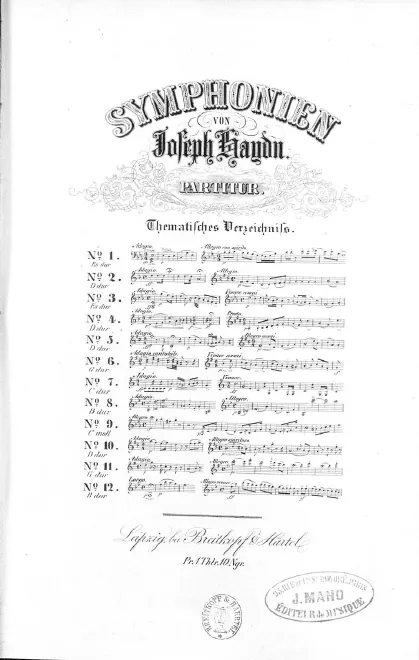 SYMPHONIEN
VON
Joseph Haydn.
PARTITUR.
Thematisches Verzeichniss.
Nº 1.
Es dur
Adagio.
Allegro con spirito
Nº 2.
D dur
Adagio.
Allegro.
Nº 3.
Es dur
Adagio.
Vivace assai
Nº 4.
D dur
Adagio.
Presto.
Nº 5.
D dur
Adagio.
Nº 6.
G dur
Adagio cantabile.
Vivace assai
Nº 7.
C dur
Adagio.
Vivace.
Nº 8.
B dur
Adagio.
Allegro.
Nº 9.
C moll
Allegro
Nº 10.
D dur
Adagio.
Nº 11.
G dur
Adagio.
Allegro
Nº 12.
B dur
Largo.
Leipzig, bei Breitkopf & Härtel.
Pr. 1 Thlr. 10 Ngr.
J. MAHO
ÉDITEUR de MUSIQUE
BREITKOPF & HÄRTEL